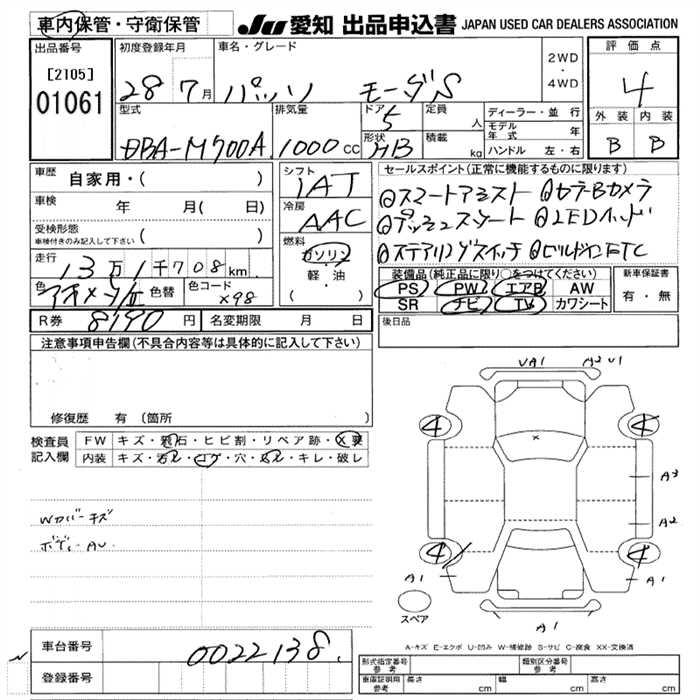 車内保管・守衛保管
JU 愛知 出品申込書 JAPAN USED CAR DEALERS ASSOCIATION
出品番号
[2105]
01061
初度登録年月
28 7月
車名・グレード
パッソ モーダS
2WD
・
4WD
評価点
4
外装 内装
B B
型式
DBA-M700A
排気量
1000 cc
ドア 5
形状 HB
定員 人
積載 kg
ディーラー・並行
モデル年式 年
ハンドル 左・右
車歴 自家用・( )
車検 年 月( 日)
受検形態
車検付きのみ記入して下さい ( )
走行 13万1千708km
色 色替 色コード
X98
R券 8190円 名変期限 月 日
シフト
IAT
冷房
AAC
燃料
ガソリン
・
軽・油
・
( )
セールスポイント(正常に機能するものに限ります)
スマートアシスト Bカメラ
LED
ステアリングスイッチ ビルトインETC
装備品(純正品に限り○をつけてください)
PS PW エアB AW
SR ナビ TV カワシート
新車保証書
有・無
後日品
注意事項申告欄(不具合内容等は具体的に記入して下さい)
修復歴 有(箇所 )
検査員
記入欄
FW キズ・飛石・ヒビ割・リペア跡・X要
内装 キズ・汚れ・コゲ・穴・ スレ・キレ・破レ
Wカバーキズ
ボディーAU
UA1 A2 U1
4 4
A3
A2
4 4
A1 A1
スペア
A1
A-キズ E-エクボ U-凹み W-補修跡 S-サビ C-腐食 XX-交換済
車台番号 0022138
登録番号
型式指定番号
参考
類別区分番号
参考
車庫証明用
参考
長さ cm 幅 cm 高さ cm